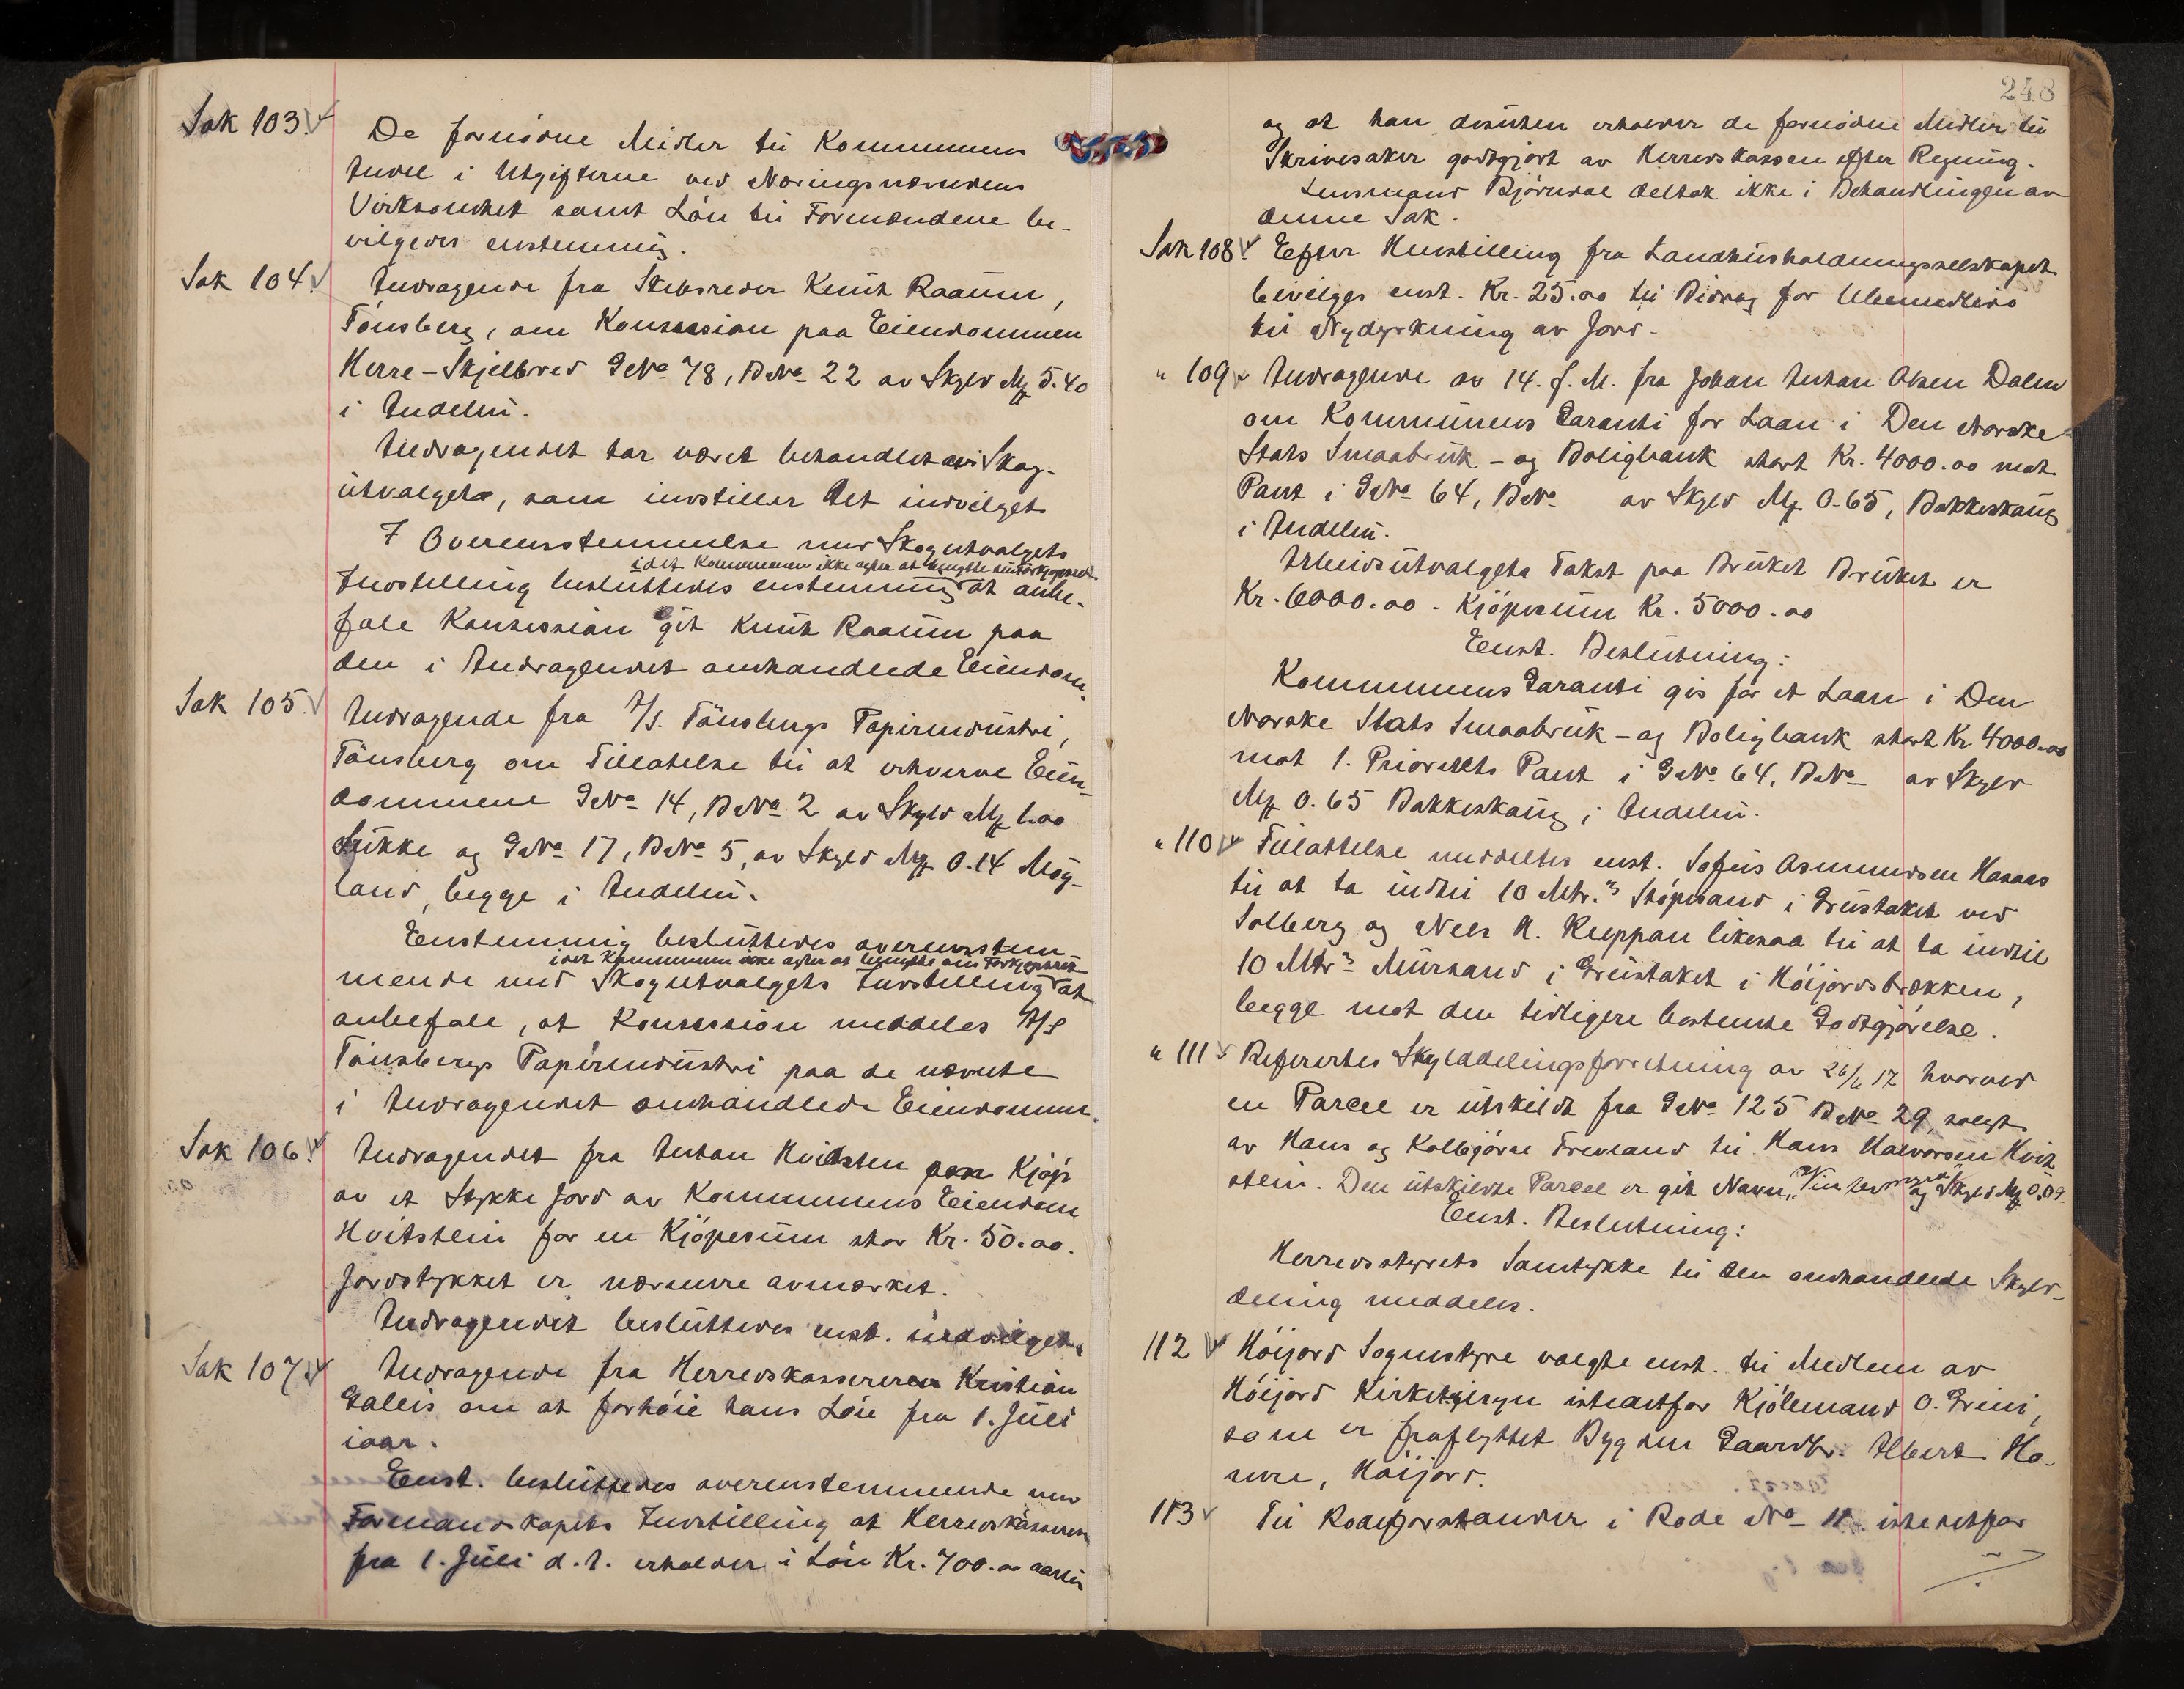 Sak 103.
De fornödne Midler til Kommunens
Andel i Utgifterne ved Næringsnævndens
Virksomhet samt Lön til Formændene be-
vilgedes enstemmig.
Sak 104.
Andragende fra Skibsreder Knut Raaum,
Tönsberg, om Konsession paa Eiendommen
Herre-Skjelbred GNo 78, BNo 22 av Skyld Mk 5.40
i Andebu.
Andragendet har været behandlet av Skog-
utvalget, som indstiller det indvilget.
I Overensstemmelse med Skogutvalgets
idet Kommunen ikke agter at benytte sin Forkjöpsret
Indstilling besluttedes enstemmig at anbe-
fale Konsession git Knut Raaum paa
den i Andragendet omhandlede Eiendom.
Sak 105.
Andragende fra A/S. Tönsbergs Papirindustri,
Tönsberg om Tillatelse til at erhverve Eien-
dommene GNo 14, BNo 2 av Skyld Mk 1.00
Sukke og GNo 17, BNo 5, av Skyld Mk 0.14 Møy-
land, begge i Andebu.
Enstemmig besluttedes overensstem-
idet Kommunen ikke agter at benytte sin Forkjöpsret
mende med Skogutvalgets Indstilling at
anbefale, at Konsession meddeles A/S
Tönsbergs Papirindustri paa de nævnte
i Andragendet omhandlede Eiendomme.
Sak 106.
Andragendet fra Anton Hvitsten paa Kjøp
av et Stykke Jord av Kommunens Eiendom
Hvitstein for en Kjöpesum stor Kr. 50.00.
Jordstykket er nærmere avmerket.
Andragendet besluttedes enst. indvilget.
Sak 107.
Andragende fra Herredskassereren Kristian
Galleis om at forhöie hans Lön fra 1. Juli
iaar.
Enst. besluttedes overenstemmende med
Formandskapets Indstilling at Herredskassereren
fra 1. Juli d. A. erholder i Lön Kr. 700.00 aarlig
248
og at han desuten erholder de fornödne Midler til
Skrivesaker godtgjort av Herredskassen efter Regning.
Lensmand Bjørndal deltok ikke i Behandlingen av
denne Sak.
Sak 108.
Efter Henstilling fra Landhusholdningsselskapet
bevilges enst. Kr. 25.00 til Bidrag for Ubemidlede
til Nydyrkning av Jord.
" 109
Andragende av 14. f. M. fra Johan Anton Olsen Dalen
om Kommunens Garanti for Laan i Den Norske
Stats Smaabruk- og Boligbank stort Kr. 4000.00 mot
Pant i GNo 64, BNo av Skyld Mk 0.65, Bakkeskaug
i Andebu.
Arbeidsutvalgets Takst paa Bruket Bruket er
Kr. 6000.00 - Kjöpesum Kr. 5000.00
Enst. Beslutning:
Kommunens Garanti gis for et Laan i Den
Norske Stats Smaabruk- og Boligbank stort Kr. 4000.00
mot 1. Prioritets Pant i GNo 64, BNo av Skyld
Mk 0.65 Bakkeskaug i Andebu.
" 110
Tillattelse meddeltes enst. Sofus Asmundsen Hasaas
til at ta indtil 10 Mtr.3 Stöpesand i Grustaket ved
Solberg og Nils H. Kleppan likesaa til at ta indtil
10 Mtr3 Mursand i Grustaket i Höijordsbrækken,
begge mot den tidligere bestemte Godtgjörelse.
" 111
Refererdes Skylddelingsforretning av 26/6 17 hvorved
en Parcel er utskildt fra GNo 125 BNo 29, solgt
av Hans og Kolbjörn Treland til Hans Halvorsen Hvit-
stein. Den utskildte Parcel er git Navn, og Skyld Mk 0.09.
Enst. Beslutning:
Herredsstyrets Samtykke til den omhandlede Skyld-
deling meddeles.
112
Höijord Sognestyre valgte enst. til Medlem av
Höijord Kirketilsyn istedetfor Kjölemand O. Greini,
som er fraflyttet Bygden Gaardbr. Albert Ho-
rvre, Höijord.
113
Til Rodeforstander i Rode No 11 istedetfor